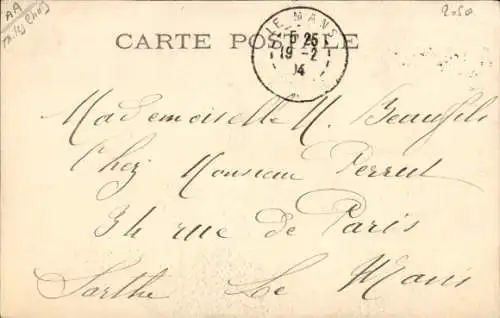 AA
2.50
CARTE POSTALE
LE MANS
5 25
19-2
04
Mademoiselle M. Beaufils
Chez Monsieur Perrut
34 rue de Paris
Sarthe Le Mans